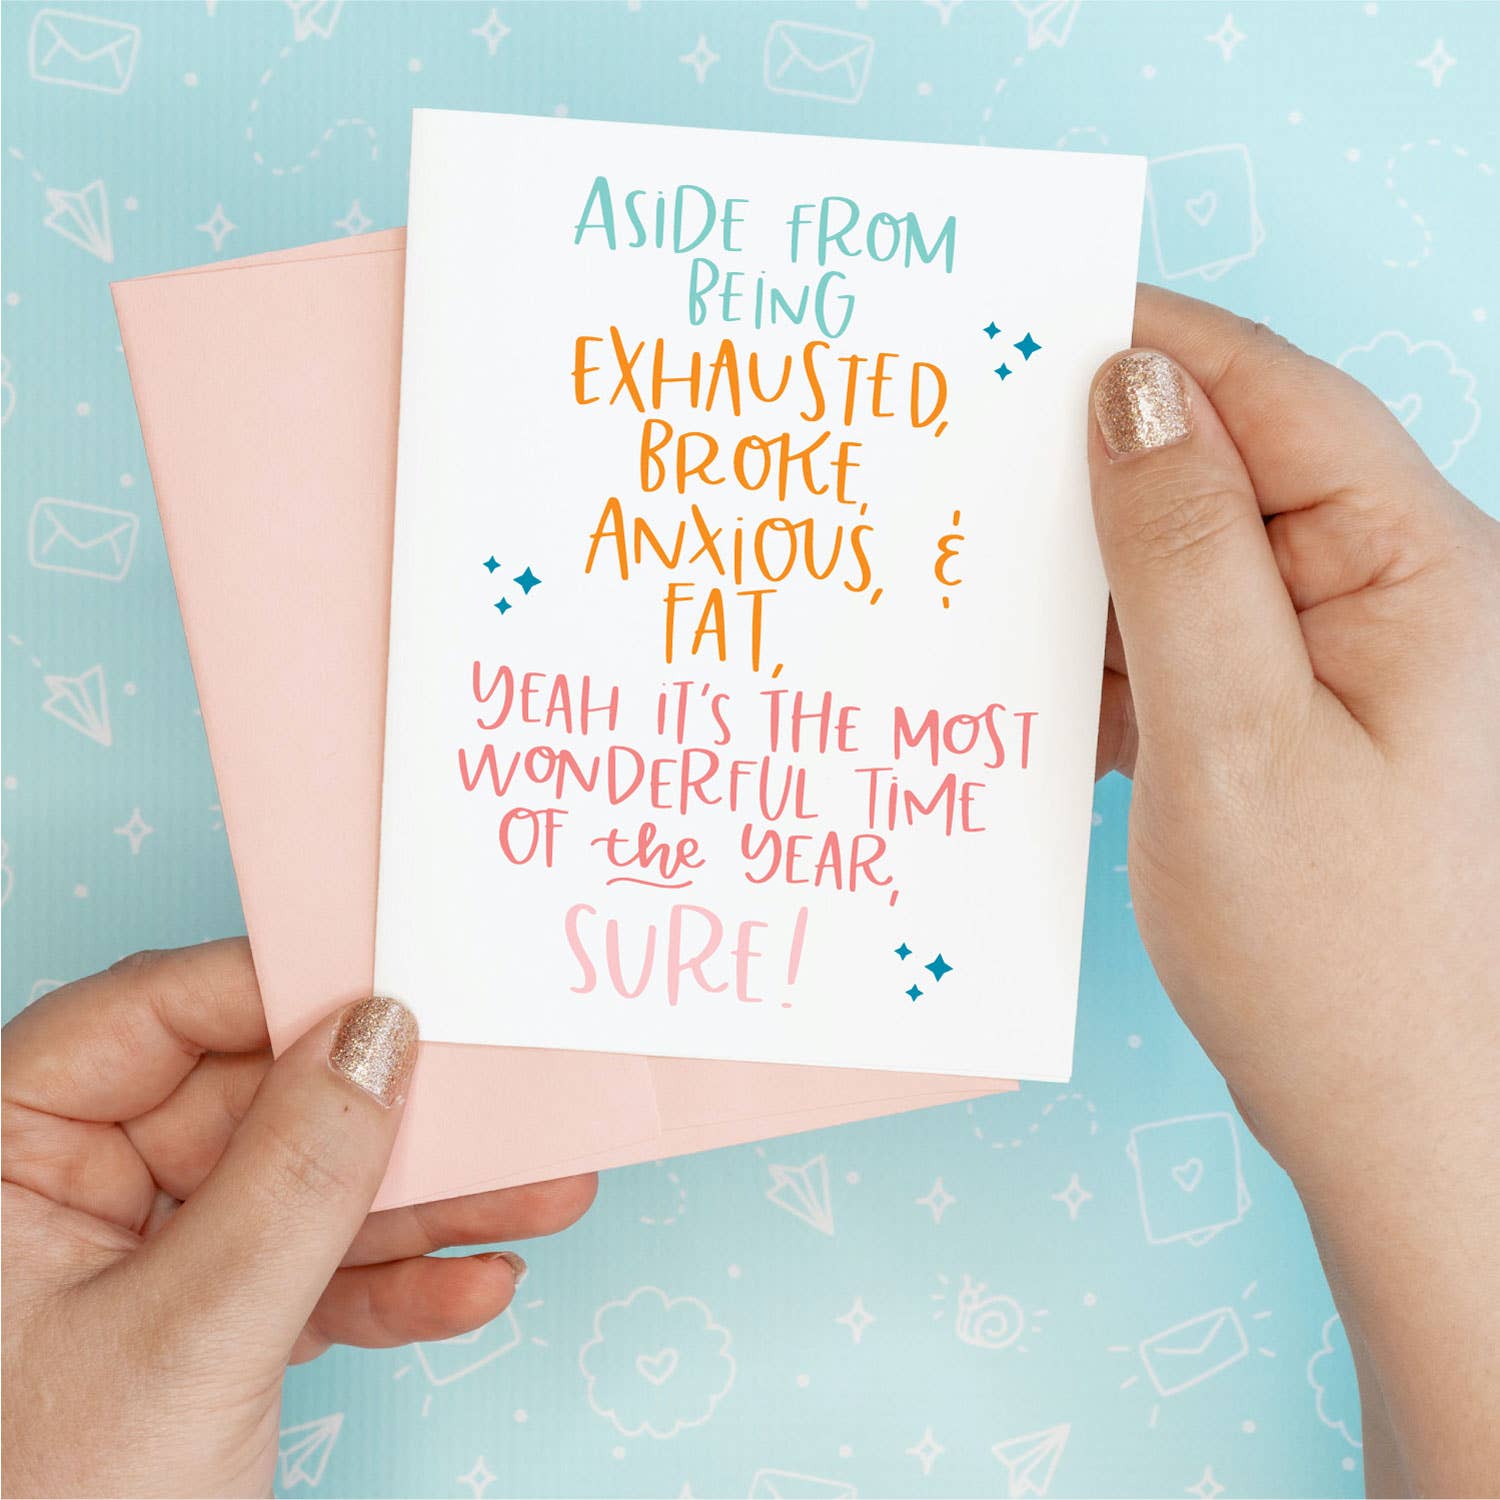 ASIDE FROM
BEING
EXHAUSTED,
BROKE,
ANXIOUS, &
FAT,
YEAH IT'S THE MOST
WONDERFUL TIME
OF the YEAR,
SURE!